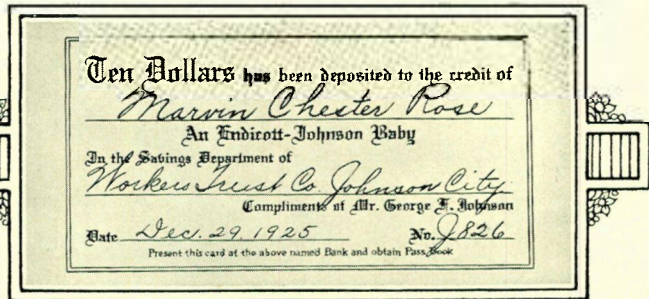 Ten Dollars has been deposited to the credit of
Marvin Chester Rose
An Endicott-Johnson Baby
In the Savings Department of
Workers Trust Co. Johnson City
Compliments of Mr. George F. Johnson
Date Dec. 29, 1925 No. J826
Present this card at the above named Bank and obtain Pass Book